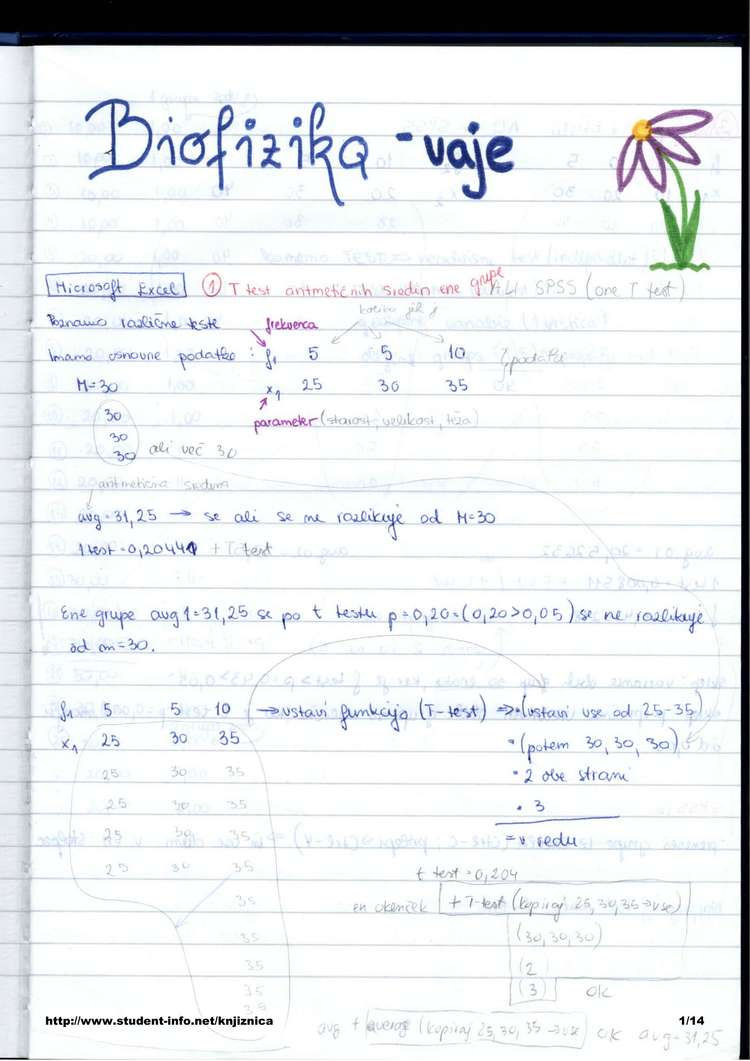 Biofizika - vaje
Microsoft Excel ① T test aritmetičnih sredin ene grupe ALI SPSS (one T test)
Poznamo različne teste frekvenca koliko jih je
Imamo osnovne podatke : f₁ 5 5 10 podatki
M=30 x₁ 25 30 35
30 parameter (starost, velikost, teža)
30
30 ali več 30
aritmetična sredina
avg=31,25 → se ali se ne razlikuje od M=30
1 test=0,20441 + T test
Ene grupe avg1=31,25 se po t testu p=0,20=(0,20>0,05) se ne razlikuje
od m=30.
f₁ 5 5 10 → ustavi funkcijo (T-test) ⇒ •(ustavi vse od 25-35)
x₁ 25 30 35 •(potem 30, 30, 30)
25 30 35 • 2 obe strani
25 30 35 • 3
25 30 35 = v redu
25 30 35 t test=0,204
35 en okenček + T-test (kopiraj 25,30,35 → vse)
35 (30,30,30)
35 (2
35 (3) ok
35
http://www.student-info.net/knjiznica 1/14
avg + average (kopiraj 25,30,35 → vse) ok avg=31,25